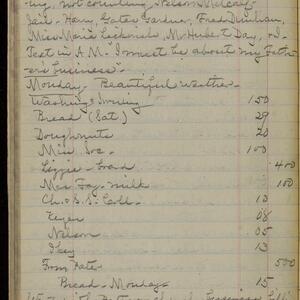 ing, not counting Nelson &
Jail - Harry, Gates Gardner, Fred Dunham,
Miss Marie, Mr. Hubert Day, &
Text in A.M. "I must be about my Fath-
er's business".
Monday - Beautiful weather.
Washing & Ironing 150
Bread (Sat) 29
Doughnuts 20
Min. Soc. 100
Lizzie - board 400
Mrs Fay - milk 100
Ch. & S.S. Coll. 10
Keyes 08
Nelson 05
Ikey 13
From Pater 500
Bread - Monday 15